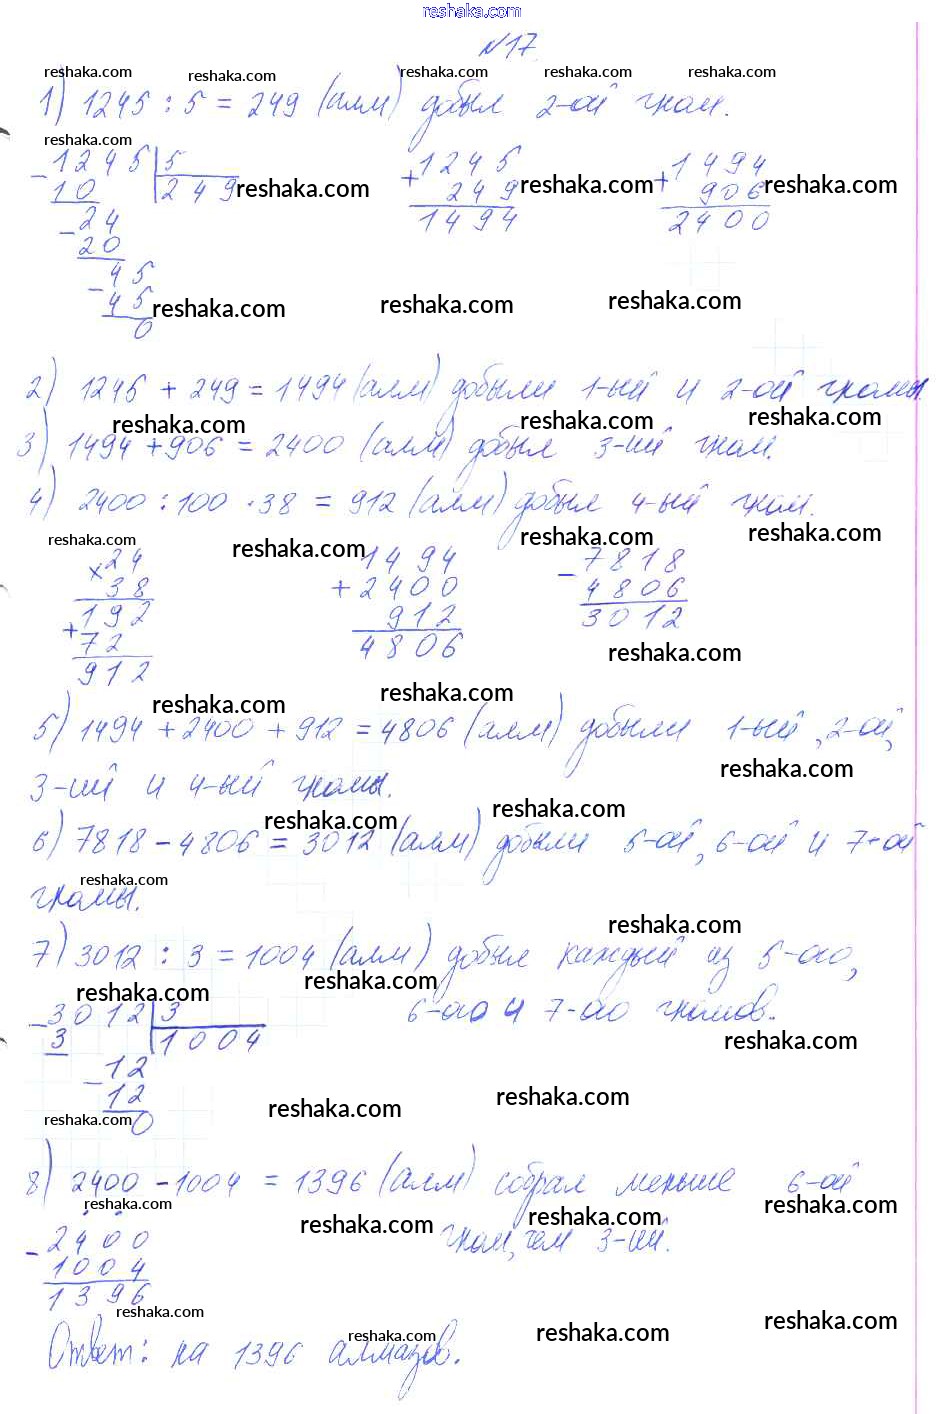 reshaka.com
№17
reshaka.com reshaka.com reshaka.com reshaka.com reshaka.com
1) 1245 : 5 = 249 (алм) добыл 2-ой гном.
reshaka.com
- 1245 | 5 + 1245 + 1494
10 | 249 reshaka.com 249 reshaka.com 906 reshaka.com
- 24 1494 2400
20
- 45
45 reshaka.com reshaka.com reshaka.com
0
2) 1245 + 249 = 1494 (алм) добыли 1-ый и 2-ой гномы.
reshaka.com reshaka.com reshaka.com
3) 1494 + 906 = 2400 (алм) добыл 3-ий гном.
4) 2400 : 100 · 38 = 912 (алм) добыл 4-ый гном.
reshaka.com reshaka.com reshaka.com reshaka.com
× 24 + 1494 - 7818
38 2400 4806
+ 192 912 3012
72 4806 reshaka.com
912
reshaka.com reshaka.com
5) 1494 + 2400 + 912 = 4806 (алм) добыли 1-ый, 2-ой,
reshaka.com
3-ий и 4-ый гномы.
reshaka.com reshaka.com
6) 7818 - 4806 = 3012 (алм) добыли 5-ой, 6-ой и 7-ой
reshaka.com
гномы.
reshaka.com
7) 3012 : 3 = 1004 (алм) добыл каждый из 5-ого,
reshaka.com reshaka.com
6-ого и 7-ого гномов.
- 3012 | 3
3 | 1004 reshaka.com
- 12
12 reshaka.com reshaka.com
reshaka.com 0
8) 2400 - 1004 = 1396 (алм) собрал меньше 6-ой
reshaka.com reshaka.com reshaka.com reshaka.com
гном, чем 3-ий.
- 2400
1004
1396
reshaka.com reshaka.com reshaka.com reshaka.com
Ответ: на 1396 алмазов.